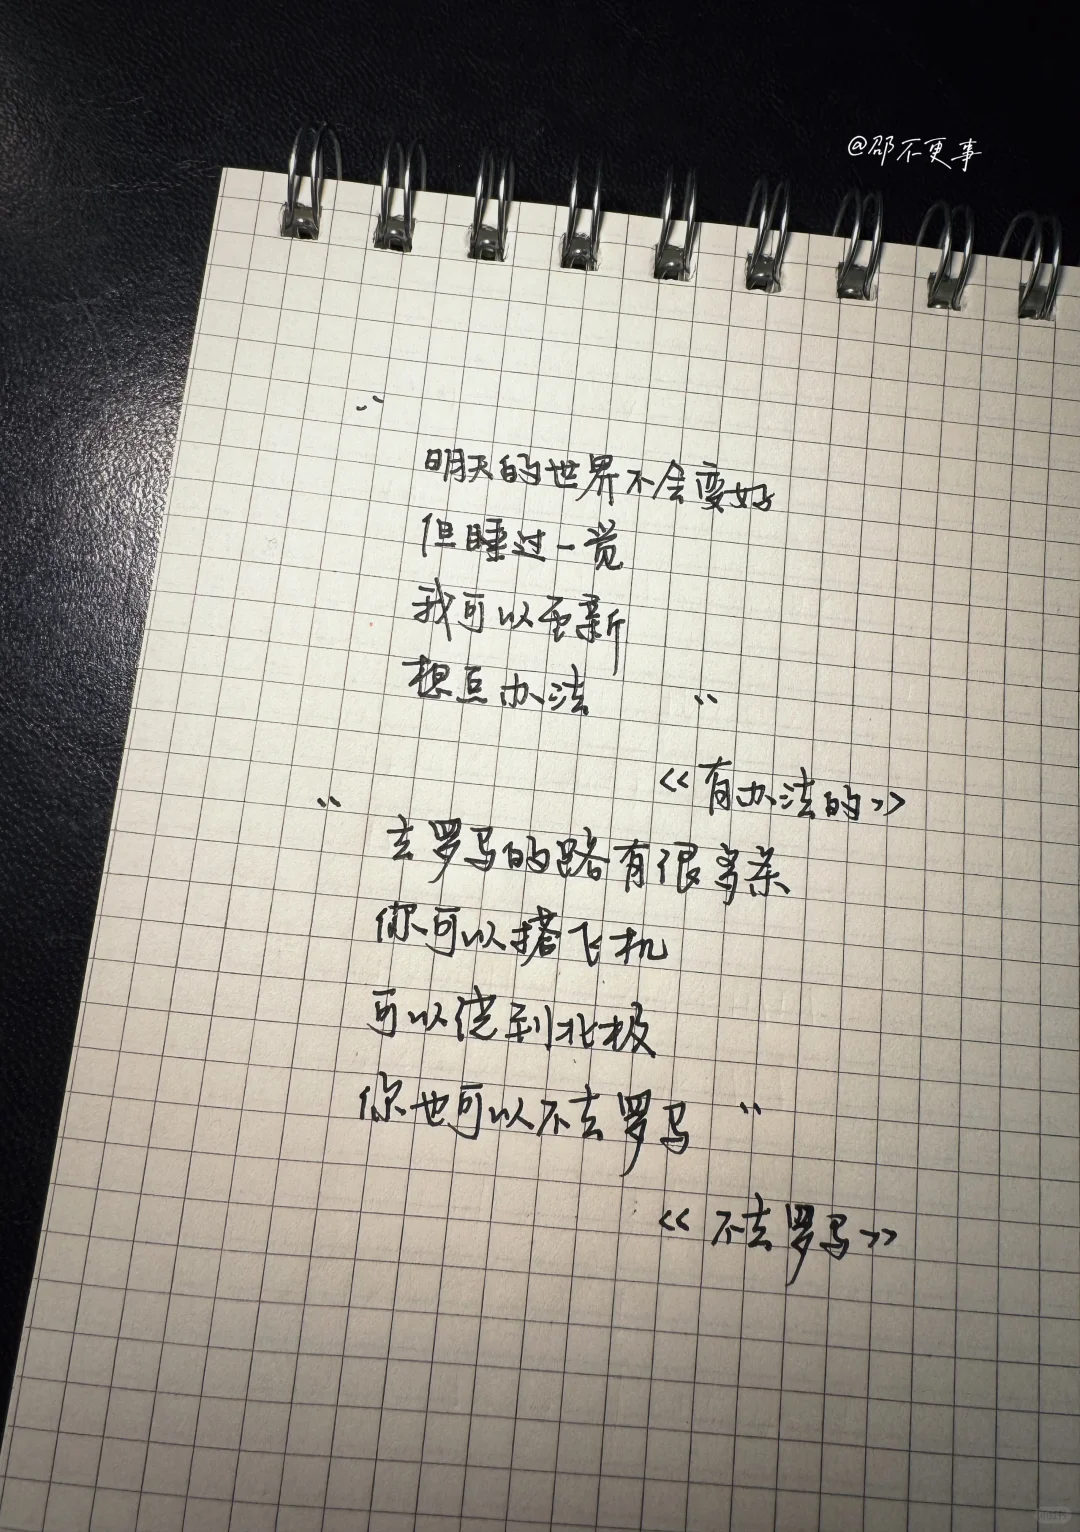 @邵不更事
“
明天的世界不会变好
但睡过一觉
我可以重新
想点办法 ”
《有办法的》
“
去罗马的路有很多条
你可以搭飞机
可以绕到北极
你也可以不去罗马 ”
《不去罗马》